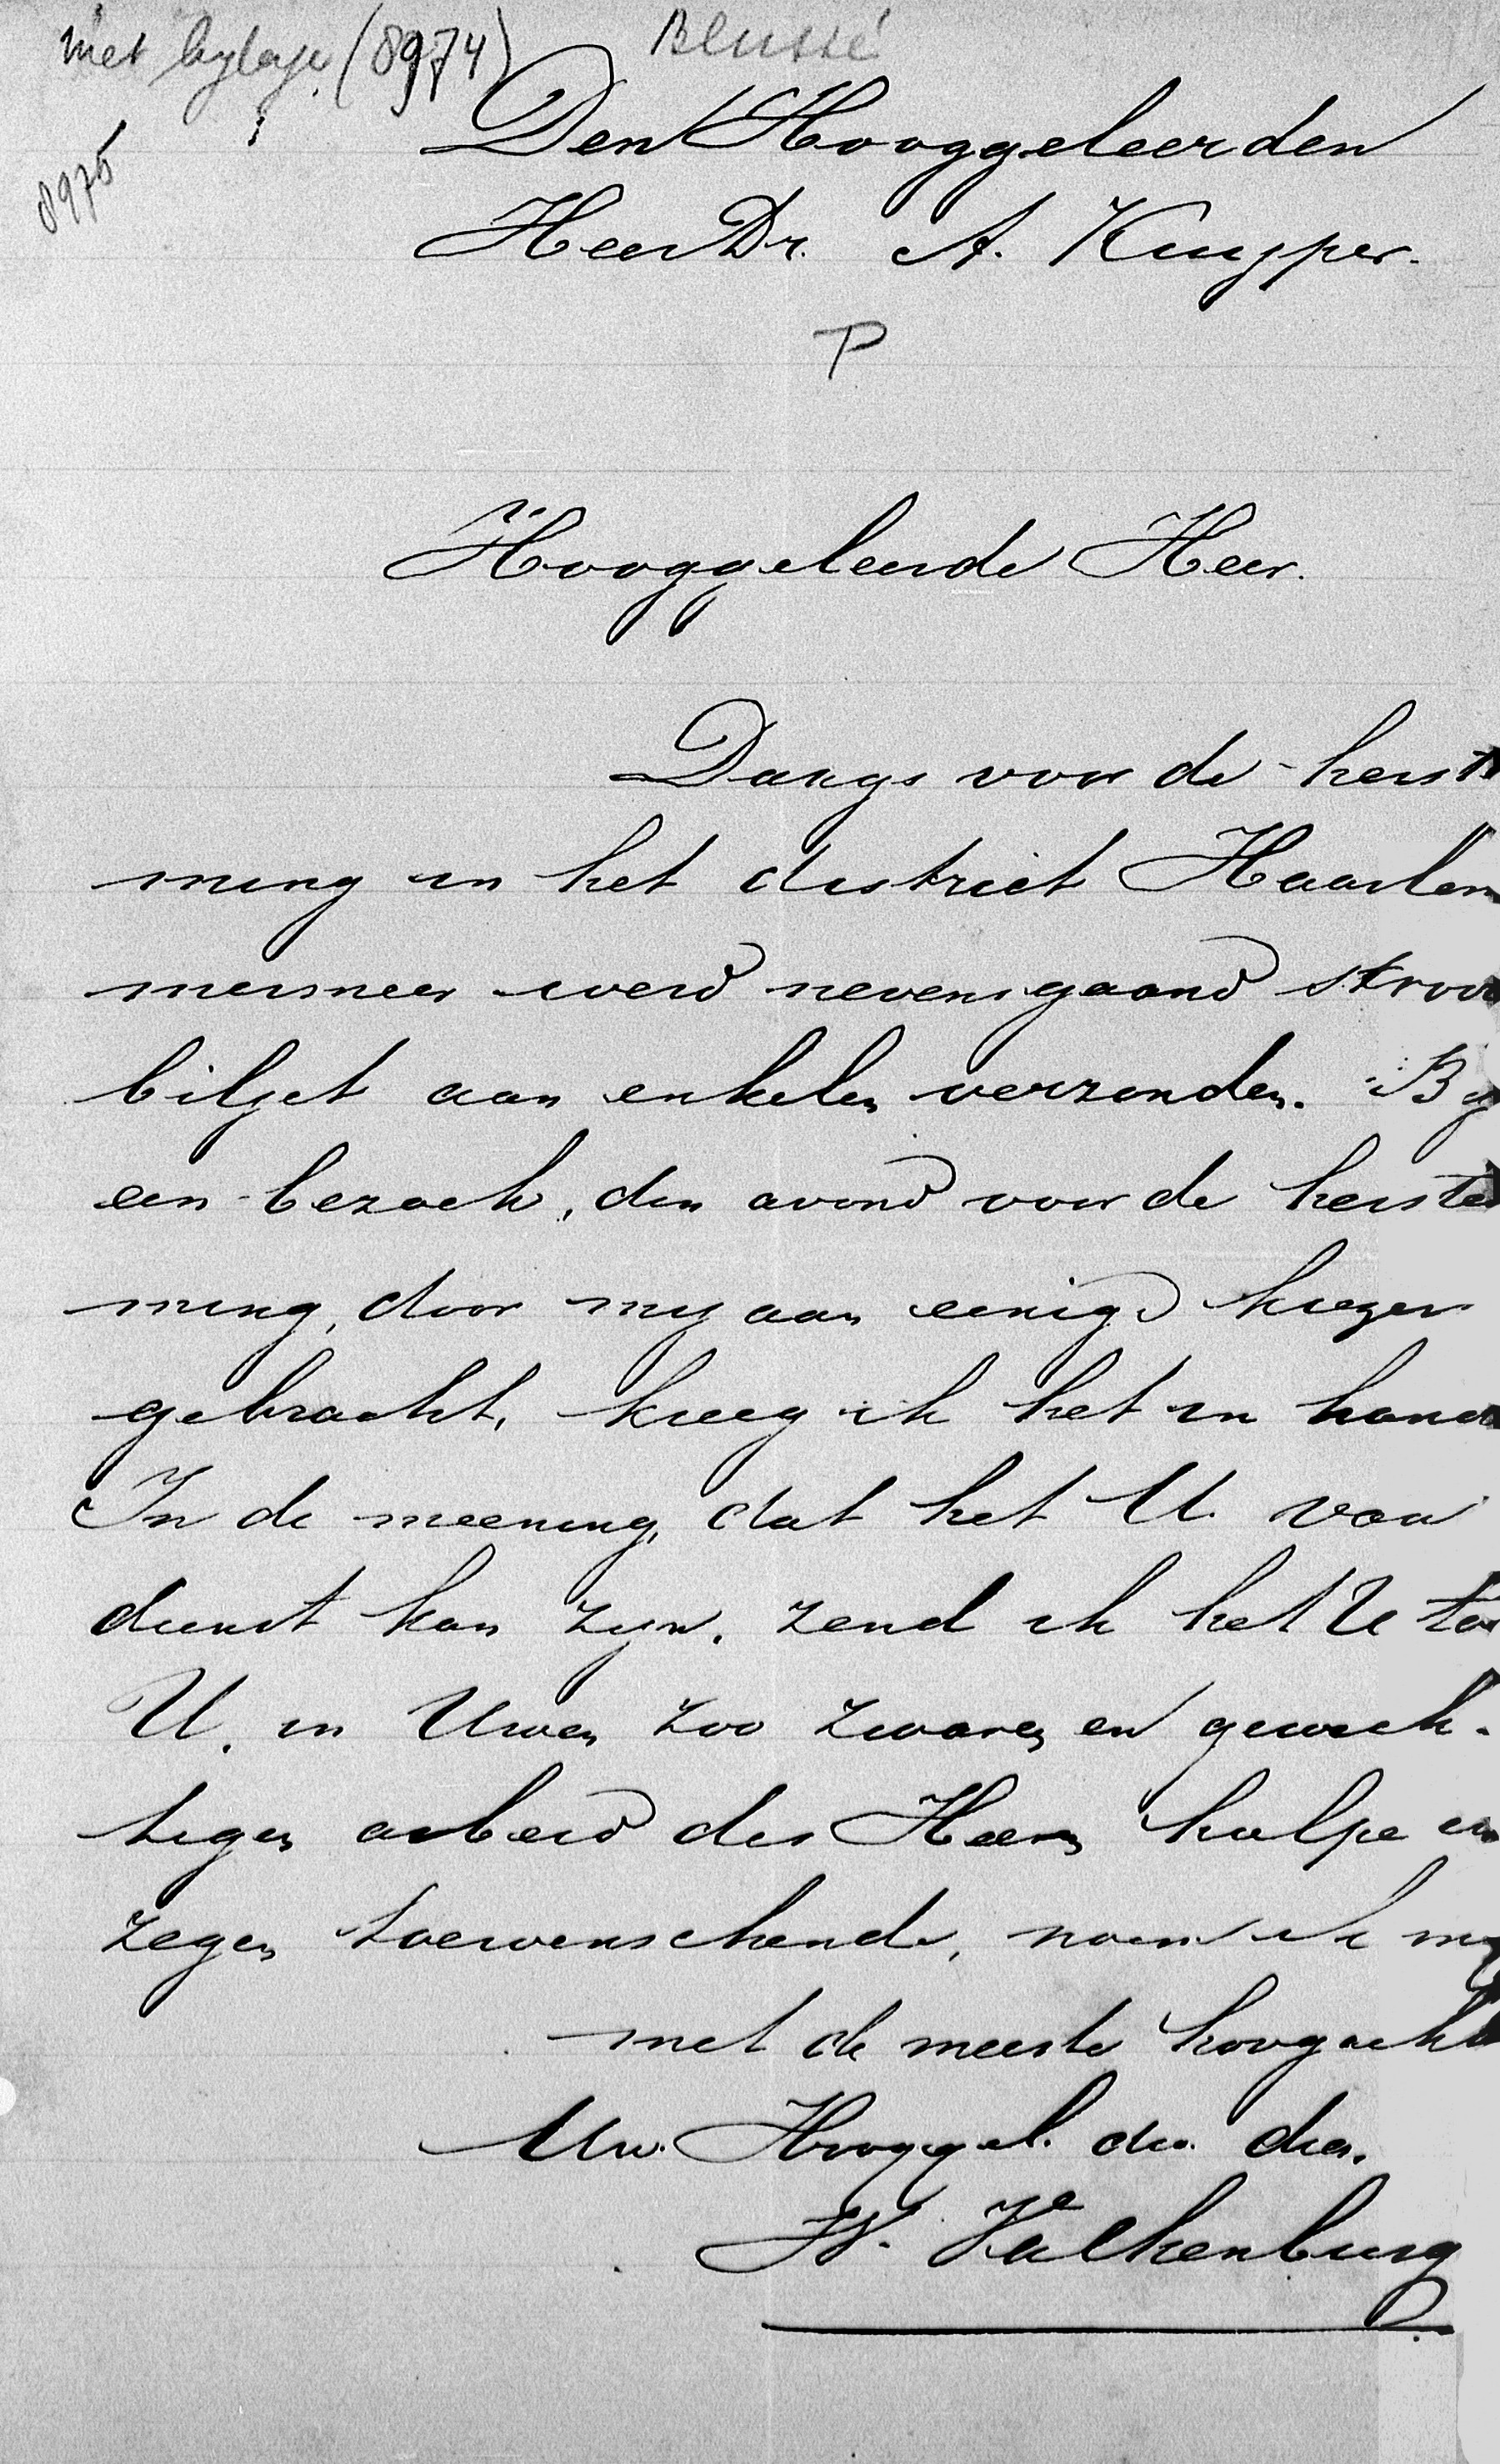 met bylage (8974)
Blussé
8975
Den Hooggeleerden
Heer Dr. A. Kuyper.
P
Hooggeleerde Heer.
Daags voor de herst
ming in het district Haarlem
mermeer werd nevensgaand strooi
biljet aan enkelen verzonden. By
een bezoek, den avond voor de herste
ming, door my aan eenige kiezers
gebracht, kreeg ik het in hand
In de meening, dat het U. van
dienst kan zyn, zend ik het U to
U. in Uwen zoo zwaren en gewich-
tigen arbeid des Heeren hulpe en
zegen toewenschende, noem ik my
met de meeste hoogacht
Uw. Hooggel. dw. dr.
W. Valkenburg